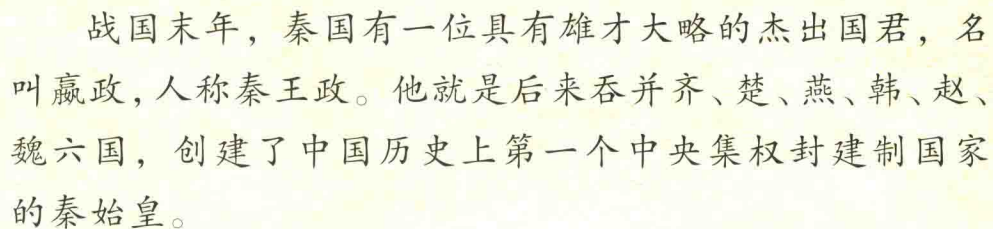 战国末年，秦国有一位具有雄才大略的杰出国君，名
叫嬴政，人称秦王政。他就是后来吞并齐、楚、燕、韩、赵、
魏六国，创建了中国历史上第一个中央集权封建制国家
的秦始皇。